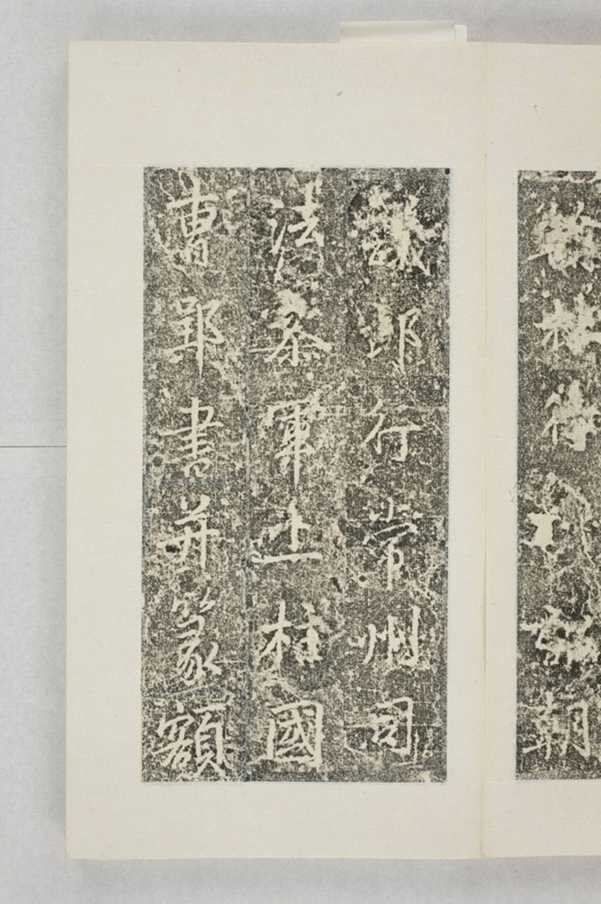 翰林待詔朝
議郎行常州司
法叅軍上柱國
曹書并篆額